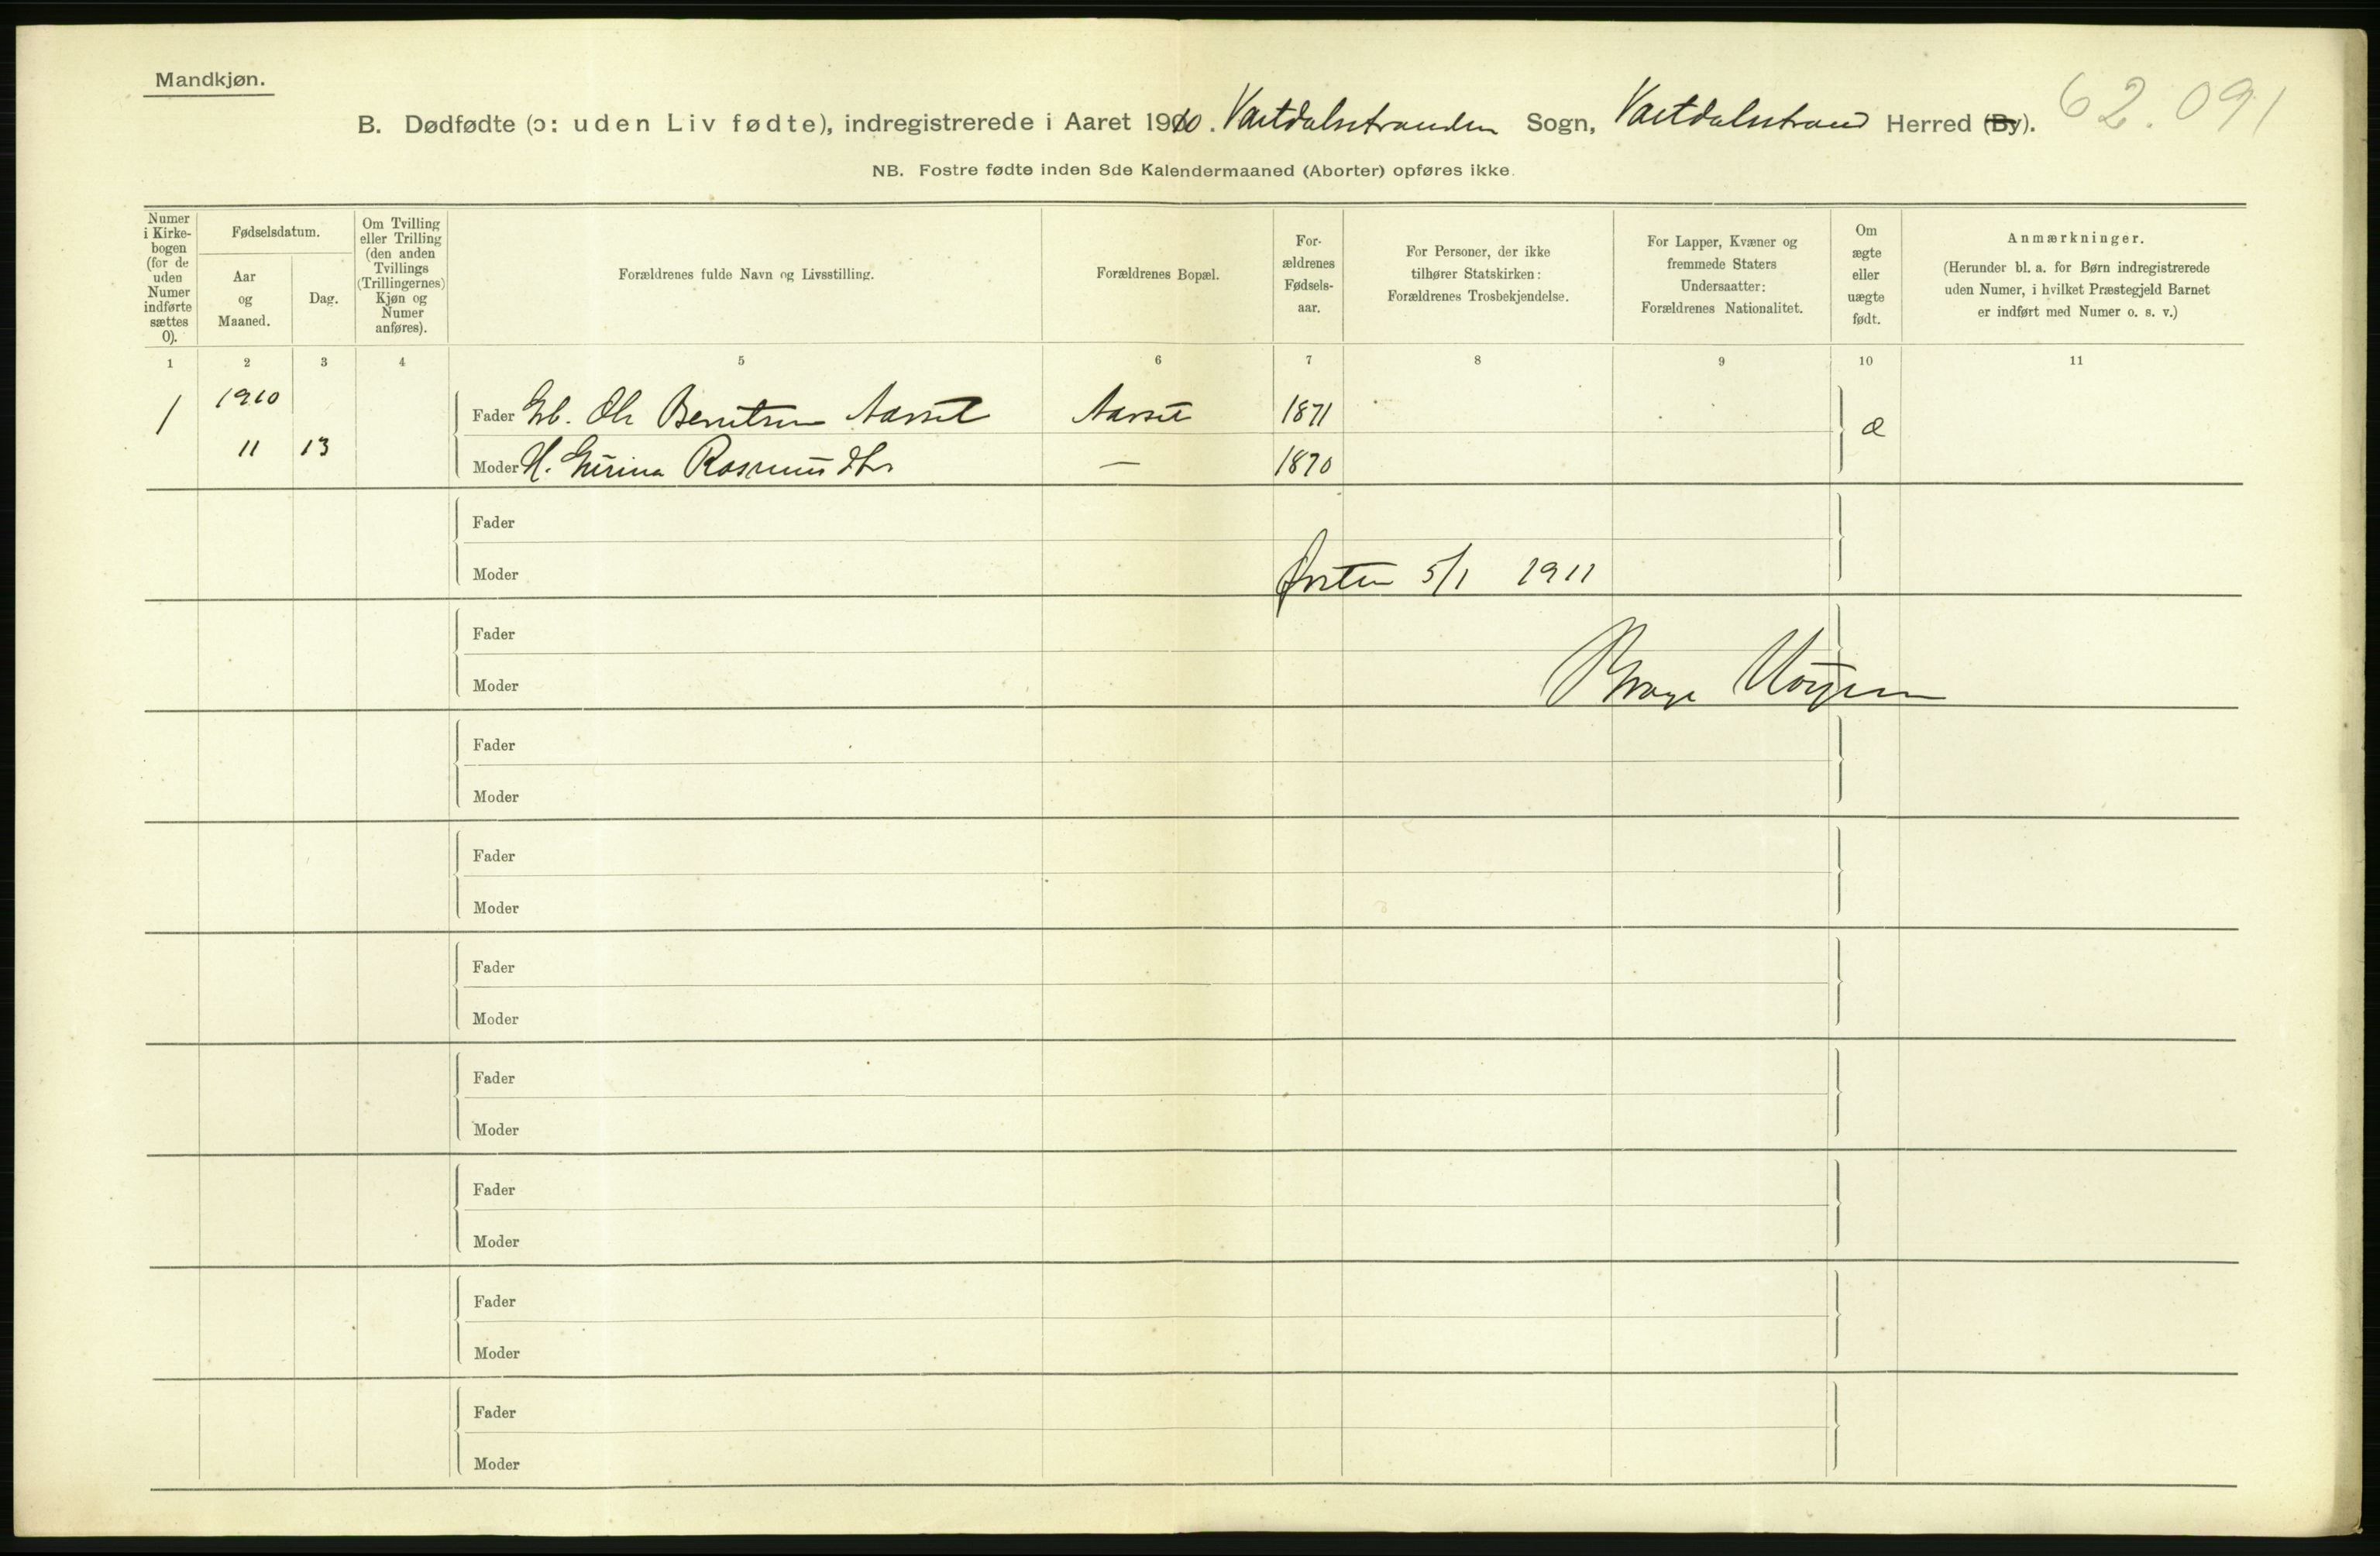 Mandkjøn.
B. Dødfødte (ɔ: uden Liv fødte), indregistrerede i Aaret 1910. Vartdalsstranden Sogn, Vartdalsstrand Herred (By). 62.091
NB. Fostre fødte inden 8de Kalendermaaned (Aborter) opføres ikke.
Numer i Kirke-bogen (for de uden Numer indførte sættes 0).
Fødselsdatum.
Aar og Maaned.
Dag.
Om Tvilling eller Trilling (den anden Tvillings (Trillingernes) Kjøn og Numer anføres).
Forældrenes fulde Navn og Livsstilling.
Forældrenes Bopæl.
For-ældrenes Fødsels-aar.
For Personer, der ikke tilhører Statskirken: Forældrenes Trosbekjendelse.
For Lapper, Kvæner og fremmede Staters Undersaatter: Forældrenes Nationalitet.
Om ægte eller uægte født.
Anmærkninger.
(Herunder bl. a. for Børn indregistrerede uden Numer, i hvilket Præstegjeld Barnet er indført med Numer o. s. v.)
1 2 3 4 5 6 7 8 9 10 11
1 1910 Fader Gb. Ole Berntsen Aarset Aarset 1871 æ
11 13 Moder H. Gurina Rasmusdtr — 1870
Fader
Moder Ørsten 5/1 1911
Fader
Moder
Fader
Moder
Fader
Moder
Fader
Moder
Fader
Moder
Fader
Moder
Fader
Moder
Fader
Moder